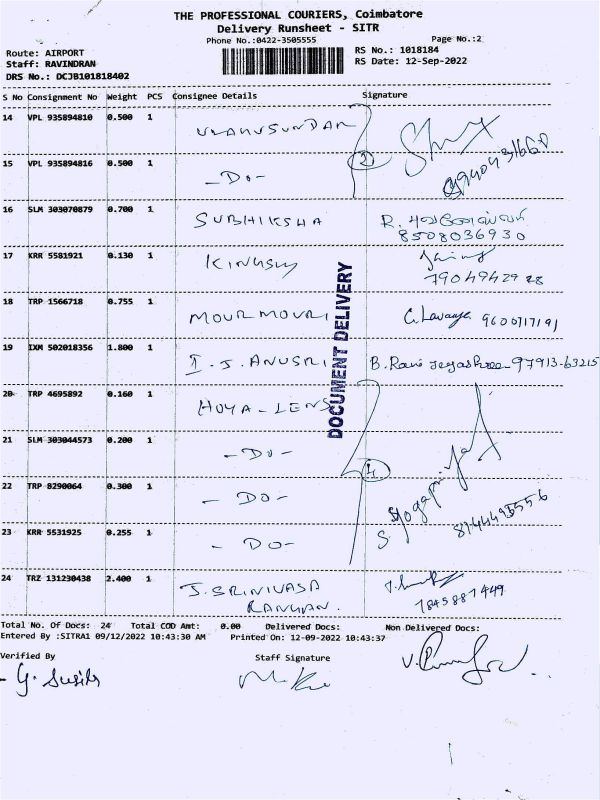 THE PROFESSIONAL COURIERS, Coimbatore
Delivery Runsheet - SITR
Phone No.:0422-3505555 Page No.:2
Route: AIRPORT RS No.: 1018184
Staff: RAVINDRAN RS Date: 12-Sep-2022
DRS No.: DCJB101818402
S No Consignment No Weight PCS Consignee Details Signature
14 VPL 935894810 0.500 1
15 VPL 935894816 0.500 1 -DO- 2
16 SLM 303070879 0.700 1 SUBHIKSHA R.
8508036930
17 KRR 5581921 0.130 1
18 TRP 1566718 0.755 1 MOURMOURI G. Lavanya 9600717191
19 IXM 502018356 1.800 1 I. J. ANUSRI B. Ravi Jeyashree 97913-63215
20 TRP 4695892 0.160 1 HOYA-LENS
21 SLM 303044573 0.200 1 -DO- 4
22 TRP 8290064 0.300 1 -DO-
23 KRR 5531925 0.255 1 -DO- S. Yogapriya
24 TRZ 131230438 2.400 1 J. SRINIVASA
7845887449
DOCUMENT DELIVERY
Total No. Of Docs: 24 Total COD Amt: 0.00 Delivered Docs: Non Delivered Docs:
Entered By :SITRA1 09/12/2022 10:43:30 AM Printed On: 12-09-2022 10:43:37
Verified By Staff Signature